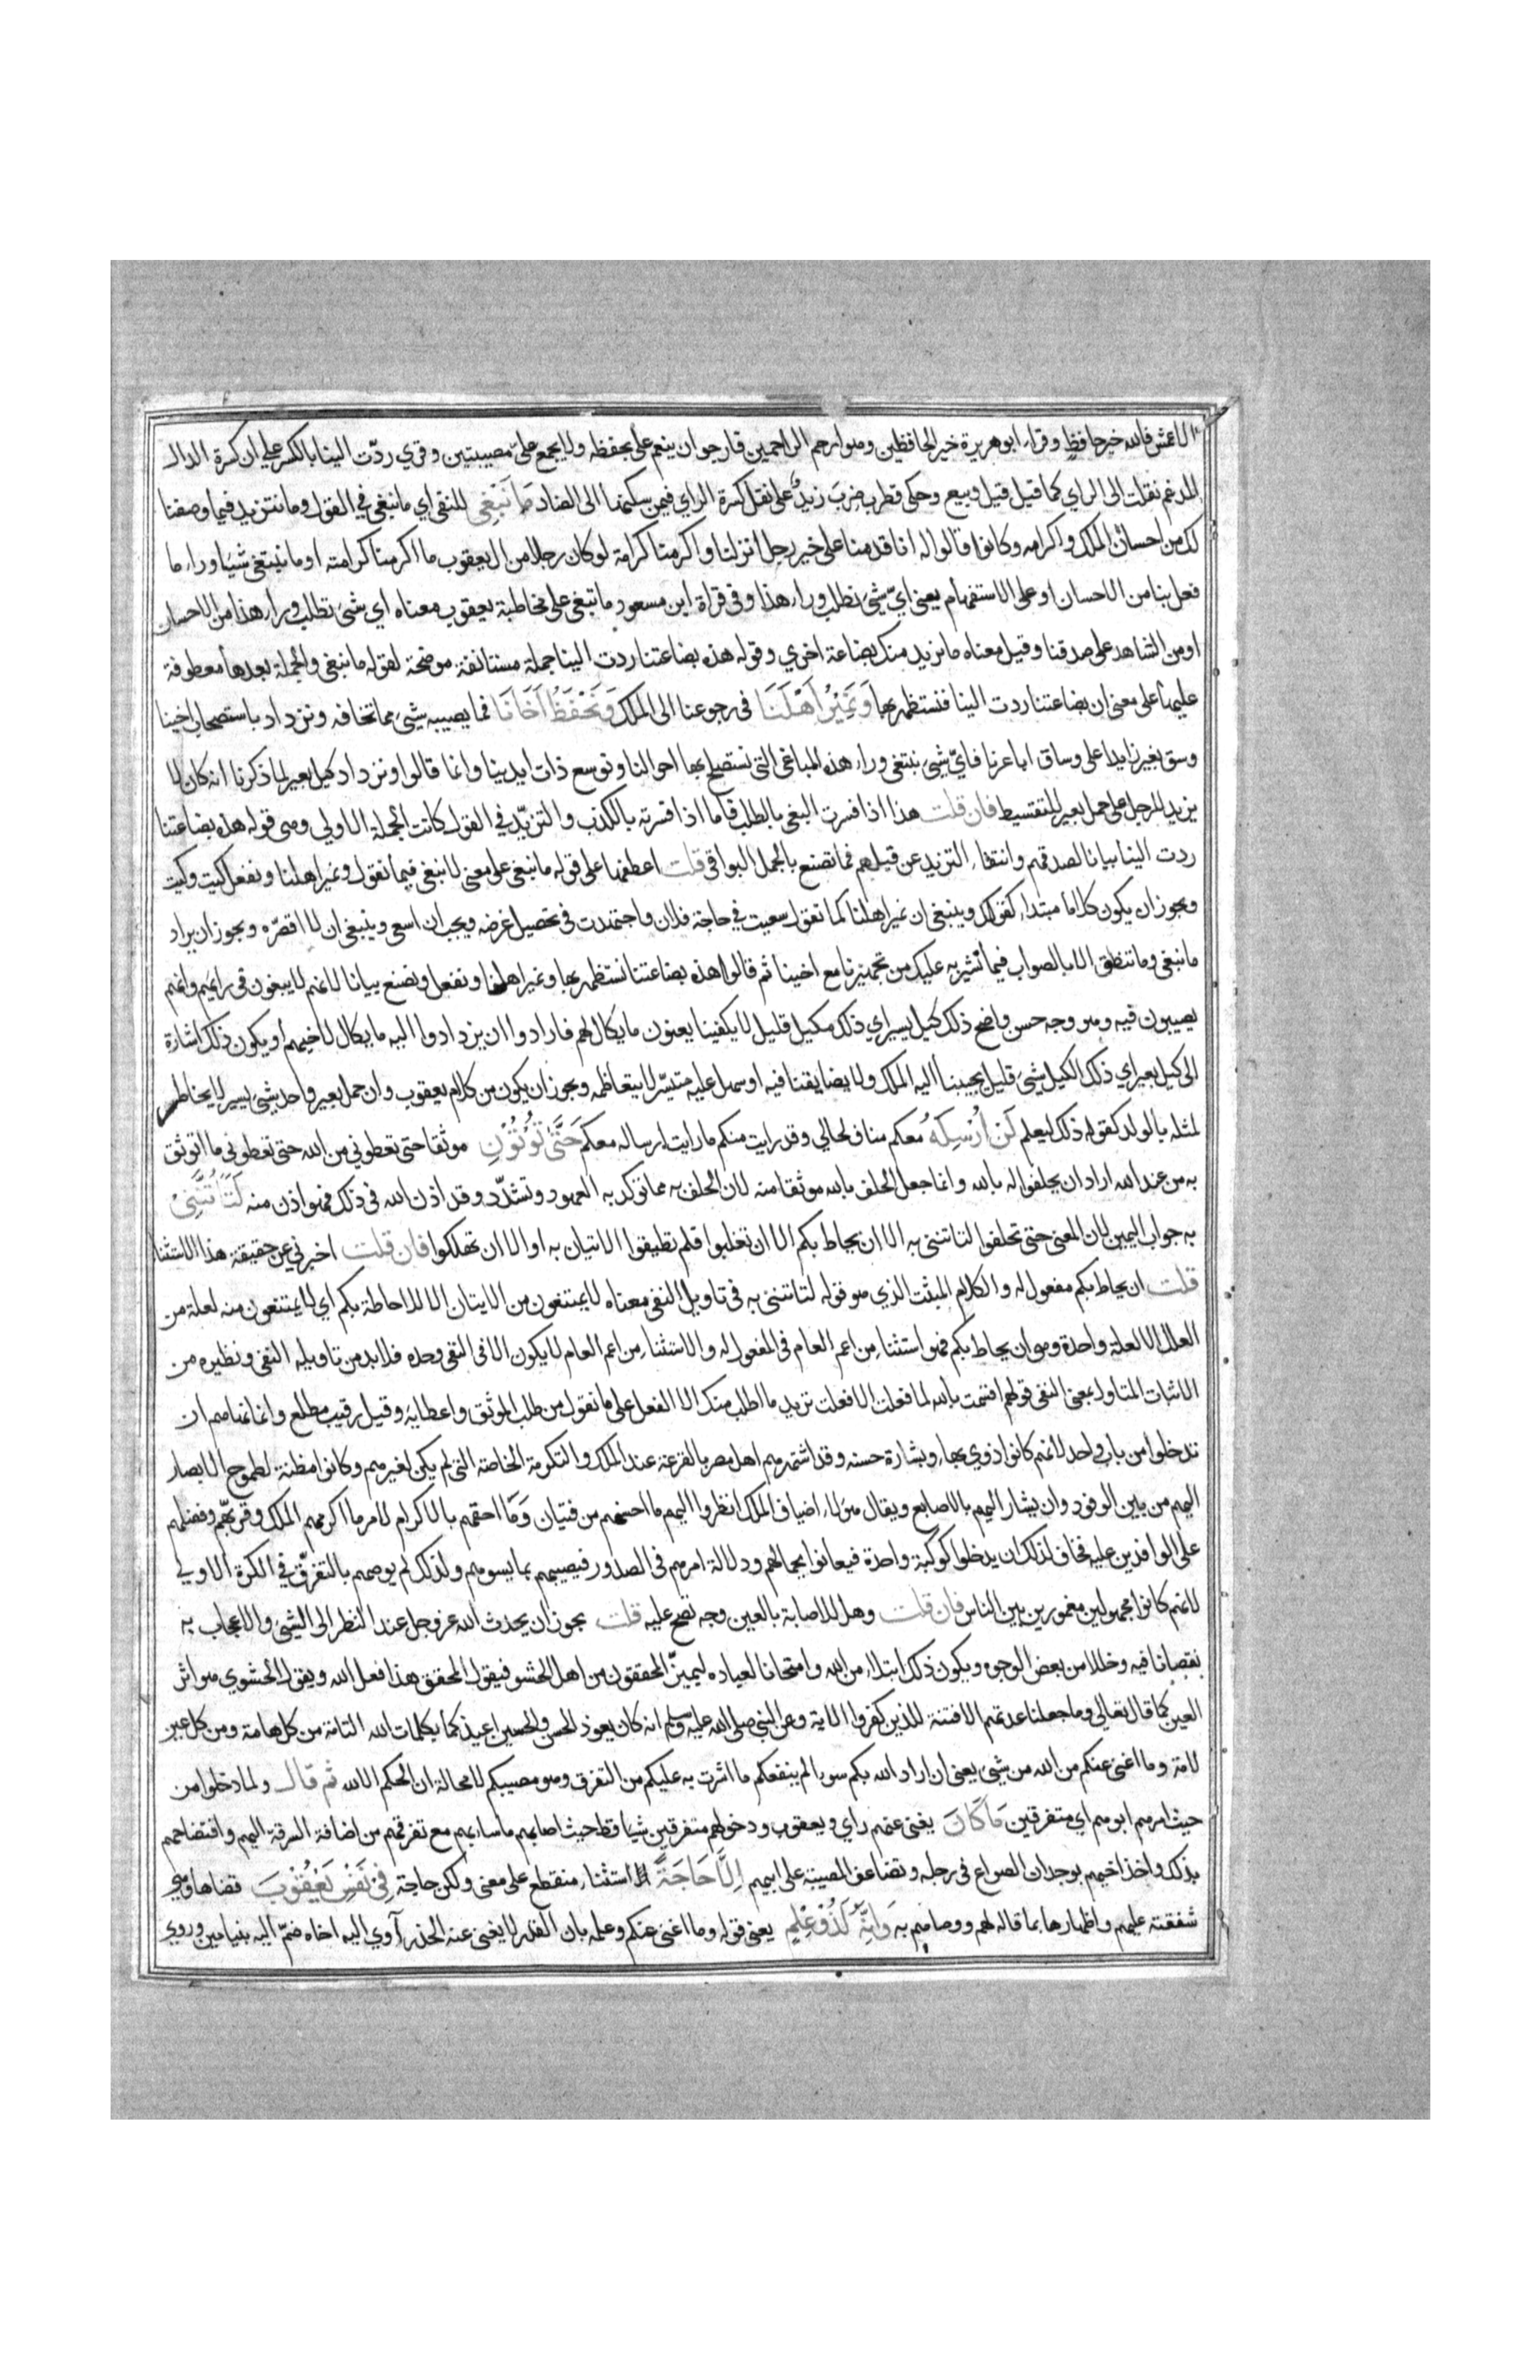 الاعمش فالله خير حافظ وقرا ابو هريرة خير الحافظين وهو ارحم الراحمين فارجوا ان ينعم على بحفظه ولا يجمع علىّ مصيبتين وقري ردّت الينا بالكسر على ان كسرة الدال
المدغم نقلت الى الراي كما قيل قيل وبيع وحكى قطرب ضِربَ زيدٌ على نقل كسرة الراي فيمن سكنها الى الضاد مَا نَبْغِى للنفى اي ما نبغى في القول وما نتزيد فيما وصفنا
لك من احسان الملك واكرامه وكانوا قالوا له انا قدمنا على خير رجل انزلنا واكرمنا كرامة لو كان رجلا من ال يعقوب ما اكرمنا كرامته او ما نبتغى شيئا وراء ما
فعل بنا من الاحسان او على الاستفهام يعنى ايّ شئ نطلب وراء هذا وفى قراة ابن مسعود ما تبغى على مخاطبة يعقوب معناه اي شئ تطلب وراء هذا من الاحسان
او من الشاهد على صدقنا وقيل معناه ما نريد منك بضاعة اخري وقوله هذه بضاعتنا ردت الينا جملة مستانفة موضحة لقوله ما نبغى والجملة بعدها معطوفة
عليها على معنى ان بضاعتنا ردت الينا فنستظهر بها وَنَمِيْرُ اَهْلَنَا فى رجوعنا الى الملك وَنَحْفَظُ اَخَانَا فما يصيبه شئ مما تخافه ونزداد باستصحاب اخينا
وسق بعير زايدا على وساق اباعرنا فايّ شئ نبتغى وراء هذه المباغى التى نستصلح بها احوالنا ونوسع ذات ايدينا وانما قالوا ونزداد كيل بعير لما ذكرنا انه كان لا
يزيد للرجل على حمل بعير للتقسيط فان قلت هذا اذا فسرت البغى بالطلب فاما اذا فسرته بالكذب والتزيّد في القول كانت الجملة الاولي وهى قوله هذه بضاعتنا
ردت الينا بيانا لصدقهم وانتفاء التزيد عن قيلهم فما تصنع بالجمل البواقى قلت اعطفها على قوله ما نبغى على معنى لا نبغى فيما نقول ونمير اهلنا ونفعل كيت وكيت
ويجوز ان يكون كلاما مبتداء كقولك وينبغى ان نمير اهلنا كما تقول سعيت في حاجة فلان واجتهدت فى تحصيل غرضه ويجب ان اسعى وينبغى ان لا اقصّره ويجوز ان يراد
ما نبغى وما ننطق الا بالصواب فيما نشير به عليك من تجهيزنا مع اخينا ثم قالوا هذه بضاعتنا نستظهر بها ونمير اهلنا ونفعل ونصنع بيانا لانهم لا يبغون فى رايهم وانهم
يصيبون فيه وهو وجه حسن واضح ذلك كيل يسير اي ذلك مكيل قليل لا يكفينا يعنون ما يكال لهم فارادوا ان يزدادوا اليه ما يكال لاخيهم او يكون ذلك اشارة
الى كيل بعير اي ذلك الكيل شئ قليل يجيبنا اليه الملك ولا يضايقنا فيه او سهل عليه متيسّر لا يتعاظمه ويجوز ان يكون من كلام يعقوب وان حمل بعير واحد شئ يسير لا يخاطر
لمثله بالولد كقوله ذلك ليعلم لَنْ اُرْسِلَهُ معكم مناف لحالي وقد رايت منكم ما رايت ارساله معكم حَتَّىٰ تُؤْتُوْنِ موثقا حتى تعطوني من الله حتى تعطونى ما اتوثق
به من عند الله اراد ان يحلفوا له بالله وانما جعل الحلف بالله موثقا منه لان الحلف به مما توكد به العهود وتشدّد وقد اذن الله فى ذلك فهو اذن منه لَتَاْتُنَّنِىْ
به جواب اليمين لان المعنى حتى تحلفوا لتاتننى به الا ان يحاط بكم الا ان تغلبوا فلم تطيقوا الاتيان به او الا ان تهلكوا فان قلت اخبرني عن حقيقة هذا الاستثنا
قلت ان يحاط بكم مفعول له والكلام المثبت الذي هو قوله لتاتننى به فى تاويل النفى معناه لا يمتنعون من الايتان الا للاحاطة بكم اي لا يمتنعون منه لعلة من
العلل الا لعلة واحدة وهى ان يحاط بكم فهو استثناء من اعم العام فى المفعول له والاستثناء من اعم العام لا يكون الا فى النفى وحده فلا بد من تاويله النفى ونظيره من
الاثبات المتاول بمعنى النفى قولهم اقسمت بالله لما فعلت الا فعلت تريد ما اطلب منك الا الفعل على ما نقول من طلب الموثق واعطايه وقيل رقيب مطلع وانما نهاهم ان
تدخلوا من باب واحد لانهم كانوا ذوي بهاء وبشارة حسنه وقد اشتهرهم اهل مصر بالقرعة عند الملك والتكرمة الخاصة التى لم يكن لغيرهم وكانوا مظنة لطموح الابصار
اليهم من بين الوفود وان يشار اليهم بالاصابع ويقال هولاء اضياف الملك انظروا اليهم ما احسنهم من فتيان وَمَا احقهم بالاكرام لامر ما اكرمهم الملك وقربهّم وفضلهم
على الوافدين عليه فخاف لذلك ان يدخلوا كوكبة واحدة فيعانوا بجمالهم ودلالة امرهم فى الصدور فيصيبهم بما يسوهم ولذلك لم يوصهم بالتفرّق في الكرة الاولي
لانهم كانوا مجهولين مغمورين بين الناس فان قلت وهل للاصابة بالعين وجه تصح عليه قلت يجوز ان يحدث الله عز وجل عند النظر الى الشئ والاعجاب به
نقصانا فيه وخللا من بعض الوجوه ويكون ذلك ابتلاء من الله وامتحانا لعباده ليميزّ المحققون من اهل الحشو فيقول المحقق هذا فعل الله ويقول الحشوي هو اثر
العين كما قال تعالي وما جعلنا عدتهم الا فتنة للذين كفروا الاية وعن النبى صلى الله عليه وسلم انه كان يعوذ الحسن والحسين اعيذ كما بكلمات الله التامة من كل هامة ومن كل عين
لامة وما اغنى عنكم من الله من شئ يعنى ان اراد الله بكم سوءا لم ينفعكم ما اشرت به عليكم من التفرق وهو مصيبكم لا محالة ان الحكم الا لله ثم قال ولما دخلوا من
حيث امرهم ابوهم اي متفرقين مَا كَانَ يغنى عنهم راي ويعقوب ودخولهم متفرقين شيا قط حيث اصابهم ما ساءهم مع تفرقهم من اضافة السرقة اليهم وافتضاحهم
بذلك واخذ اخيهم بوجدان الصواع فى رحله وتضاعف المصيبة على ابيهم اِلَّا حَاجَةً استثناء منقطع على معنى ولكن حاجة فِىْ نَفْسِ يَعْقُوْبَ قضاها وهى
شفقته عليهم واظهارها بما قاله لهم ووصاهم به وَاِنَّهٗ لَذُوْ عِلْمٍ يعنى قوله وما اغنى عنكم وعلمه بان القدر لا يغنى عنه الحذر آوي اليه اخاه ضمّ اليه بنيامين وروي